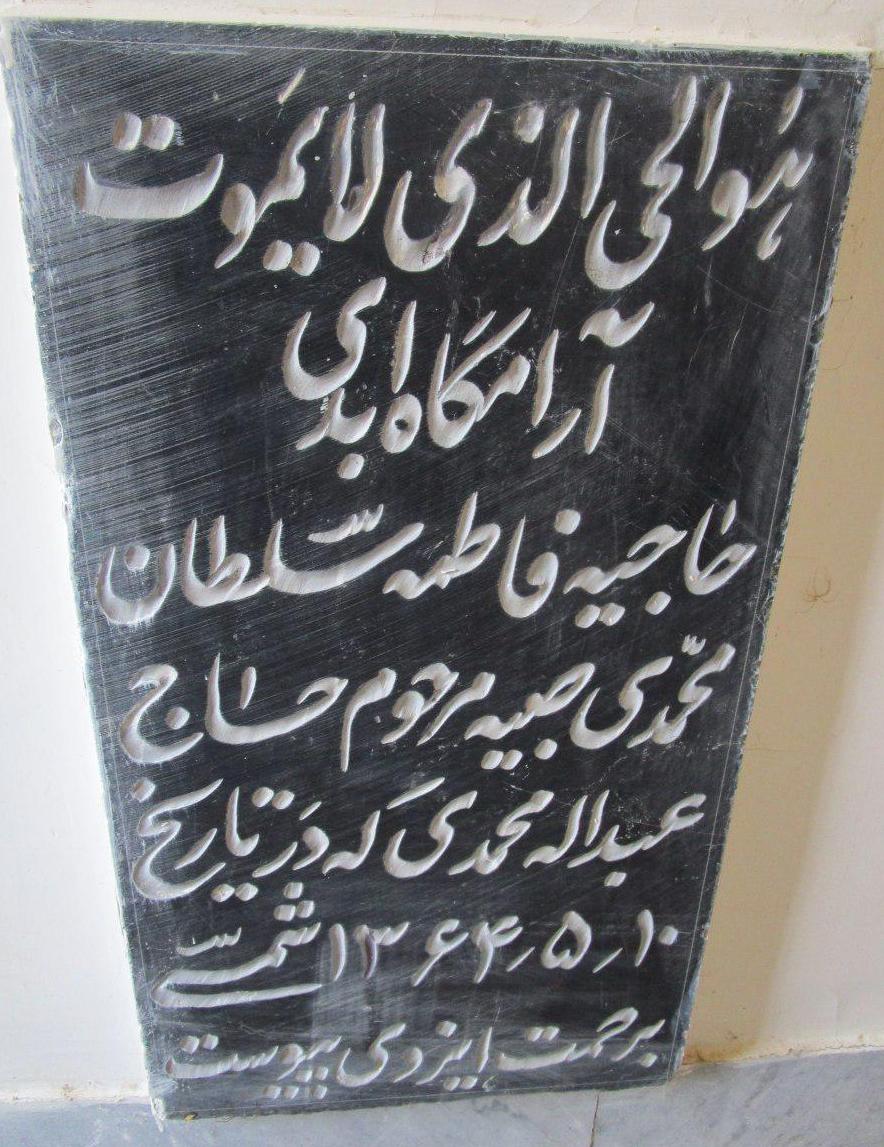 هوالحی الذی لایموت
آرامگاه ابدی
حاجیه فاطمه سلطان
محمدی صبیه مرحوم حاج
عبداله محمدی که در تاریخ
۱۰٫۵٫۱۳۶۴ شمسی
برحمت ایزدی پیوست